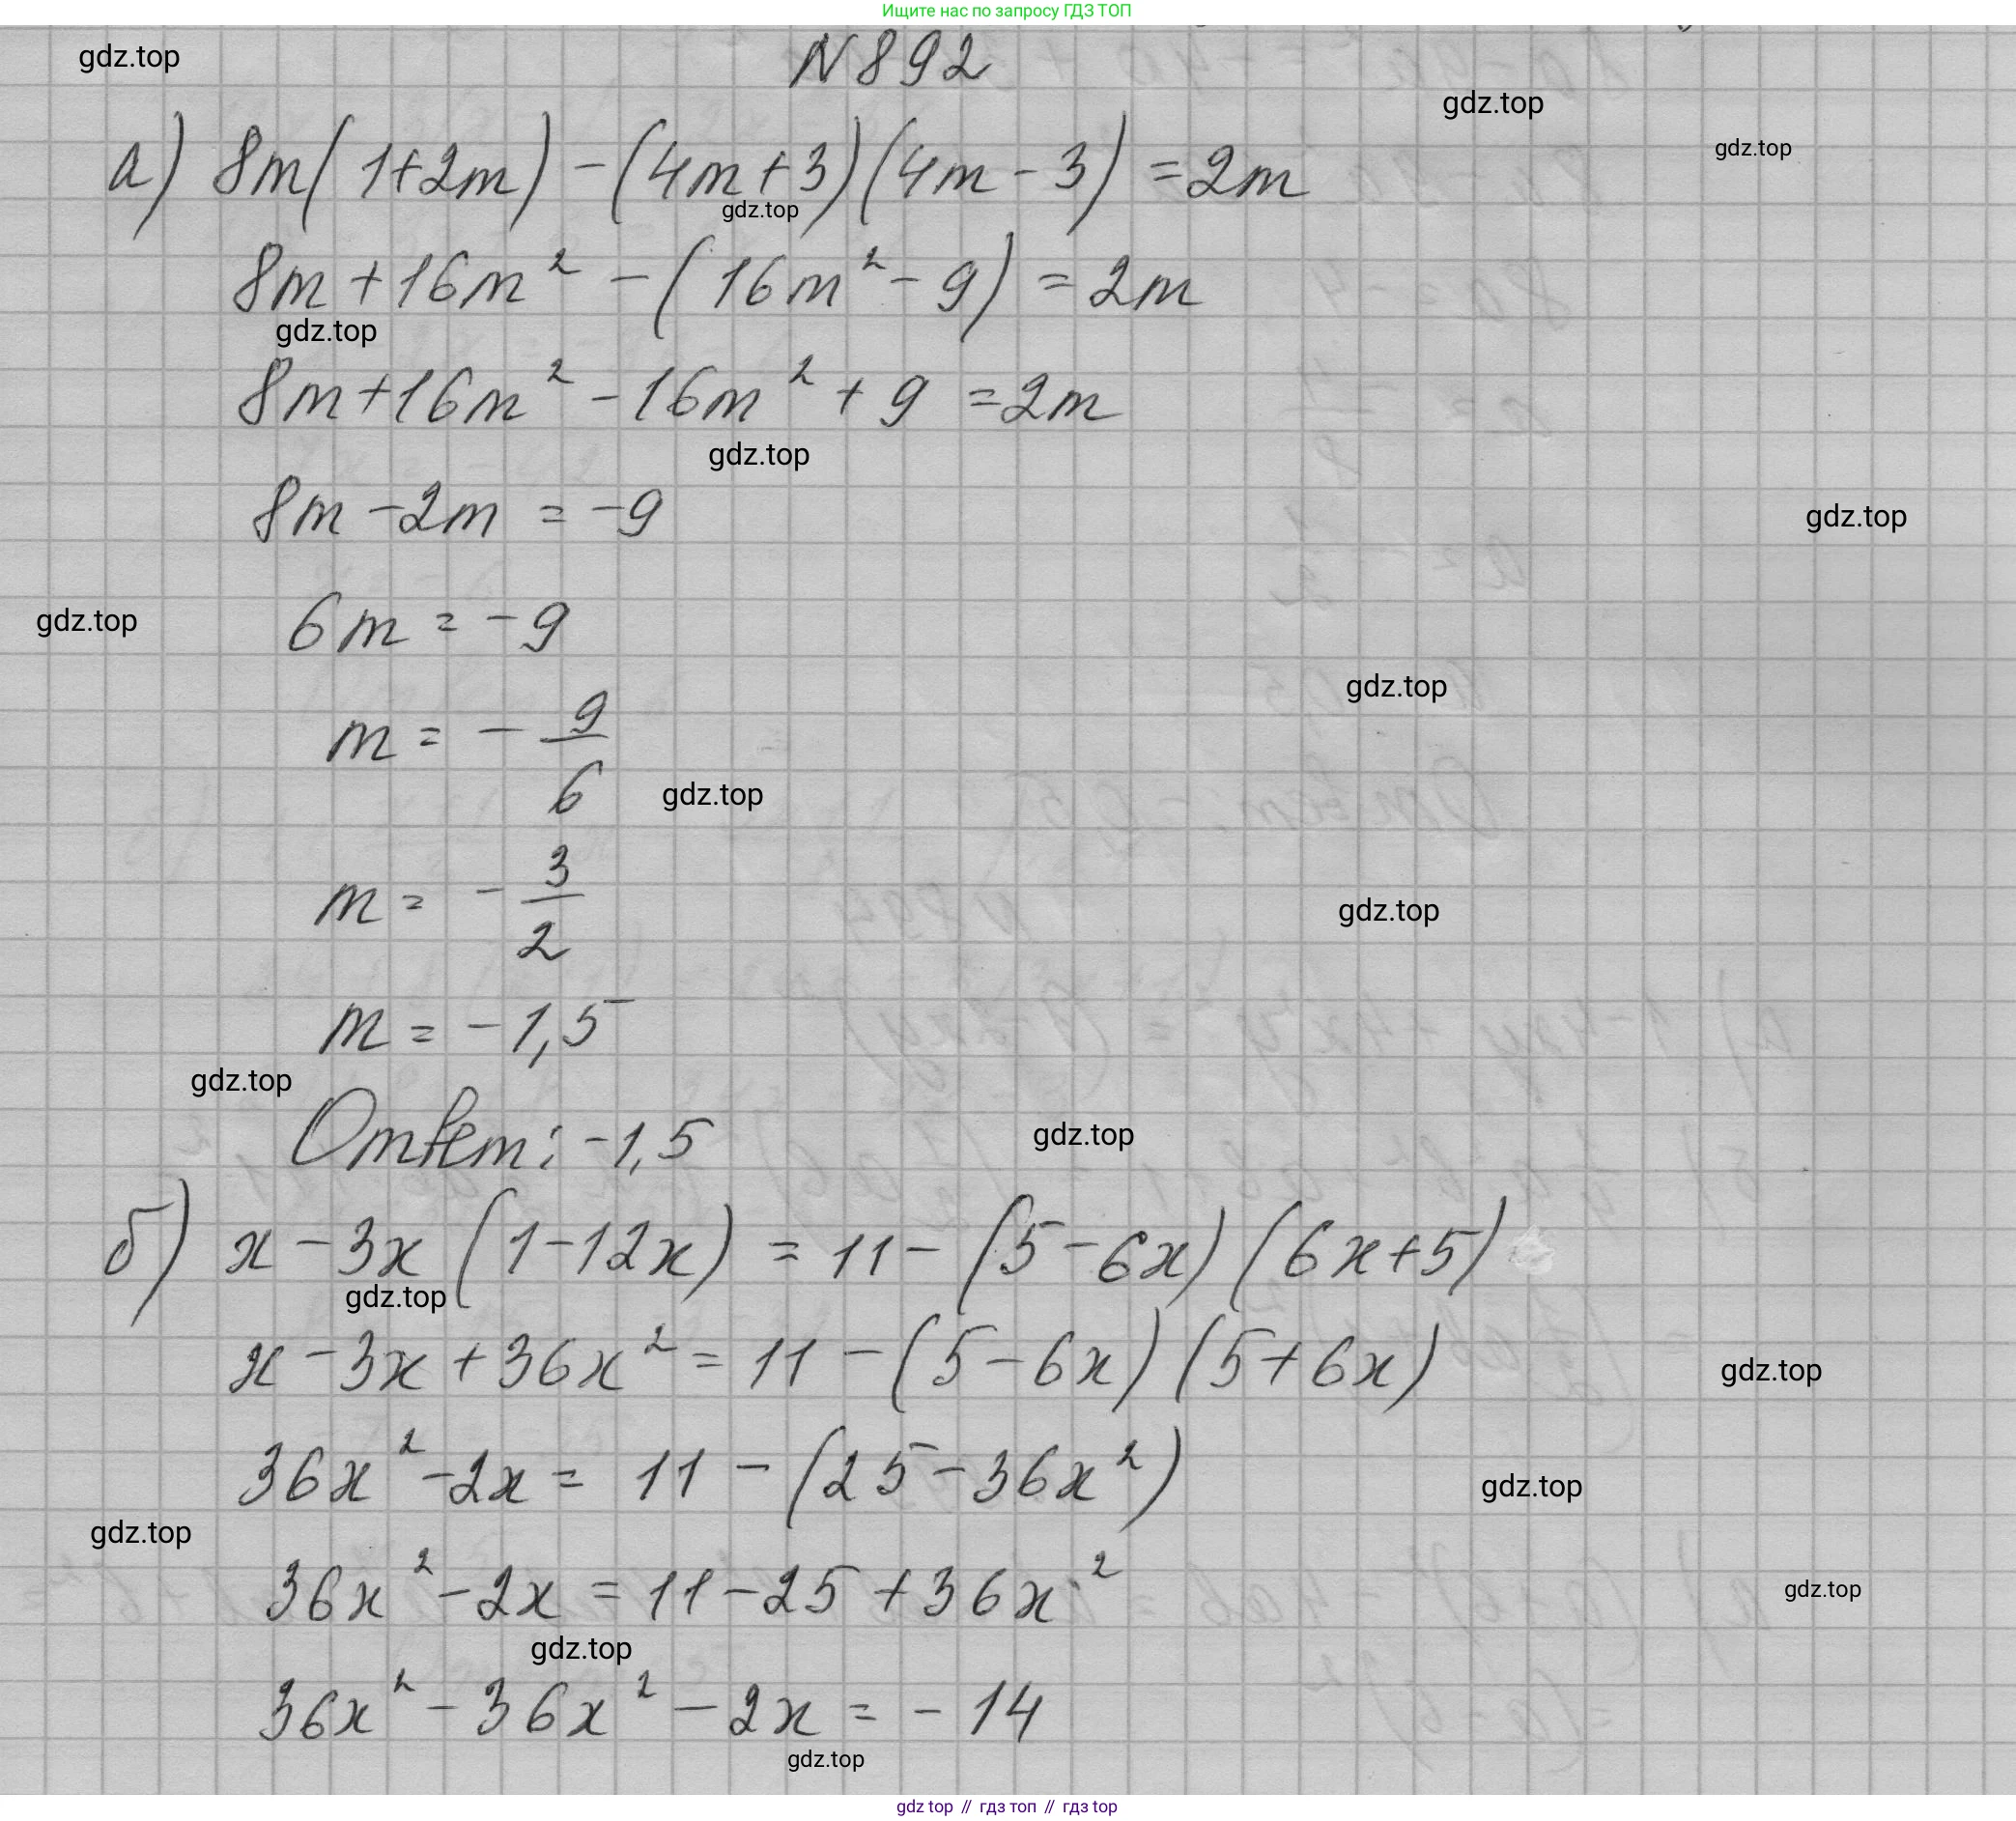 Ищите нас по запросу ГДЗ ТОП
gdz.top
N 892
gdz.top
gdz.top
а) 8m(1+2m) - (4m+3)(4m-3) = 2m
gdz.top
8m + 16m² - (16m² - 9) = 2m
gdz.top
8m + 16m² - 16m² + 9 = 2m
gdz.top
8m - 2m = -9
gdz.top
6m = -9
gdz.top
gdz.top
m = - 9/6
gdz.top
m = - 3/2
gdz.top
m = -1,5
gdz.top
Ответ: -1,5
gdz.top
б) x - 3x (1-12x) = 11 - (5-6x)(6x+5)
gdz.top
x - 3x + 36x² = 11 - (5-6x)(5+6x)
gdz.top
36x² - 2x = 11 - (25 - 36x²)
gdz.top
gdz.top
36x² - 2x = 11 - 25 + 36x²
gdz.top
gdz.top
36x² - 36x² - 2x = - 14
gdz.top
gdz top // гдз топ // гдз top